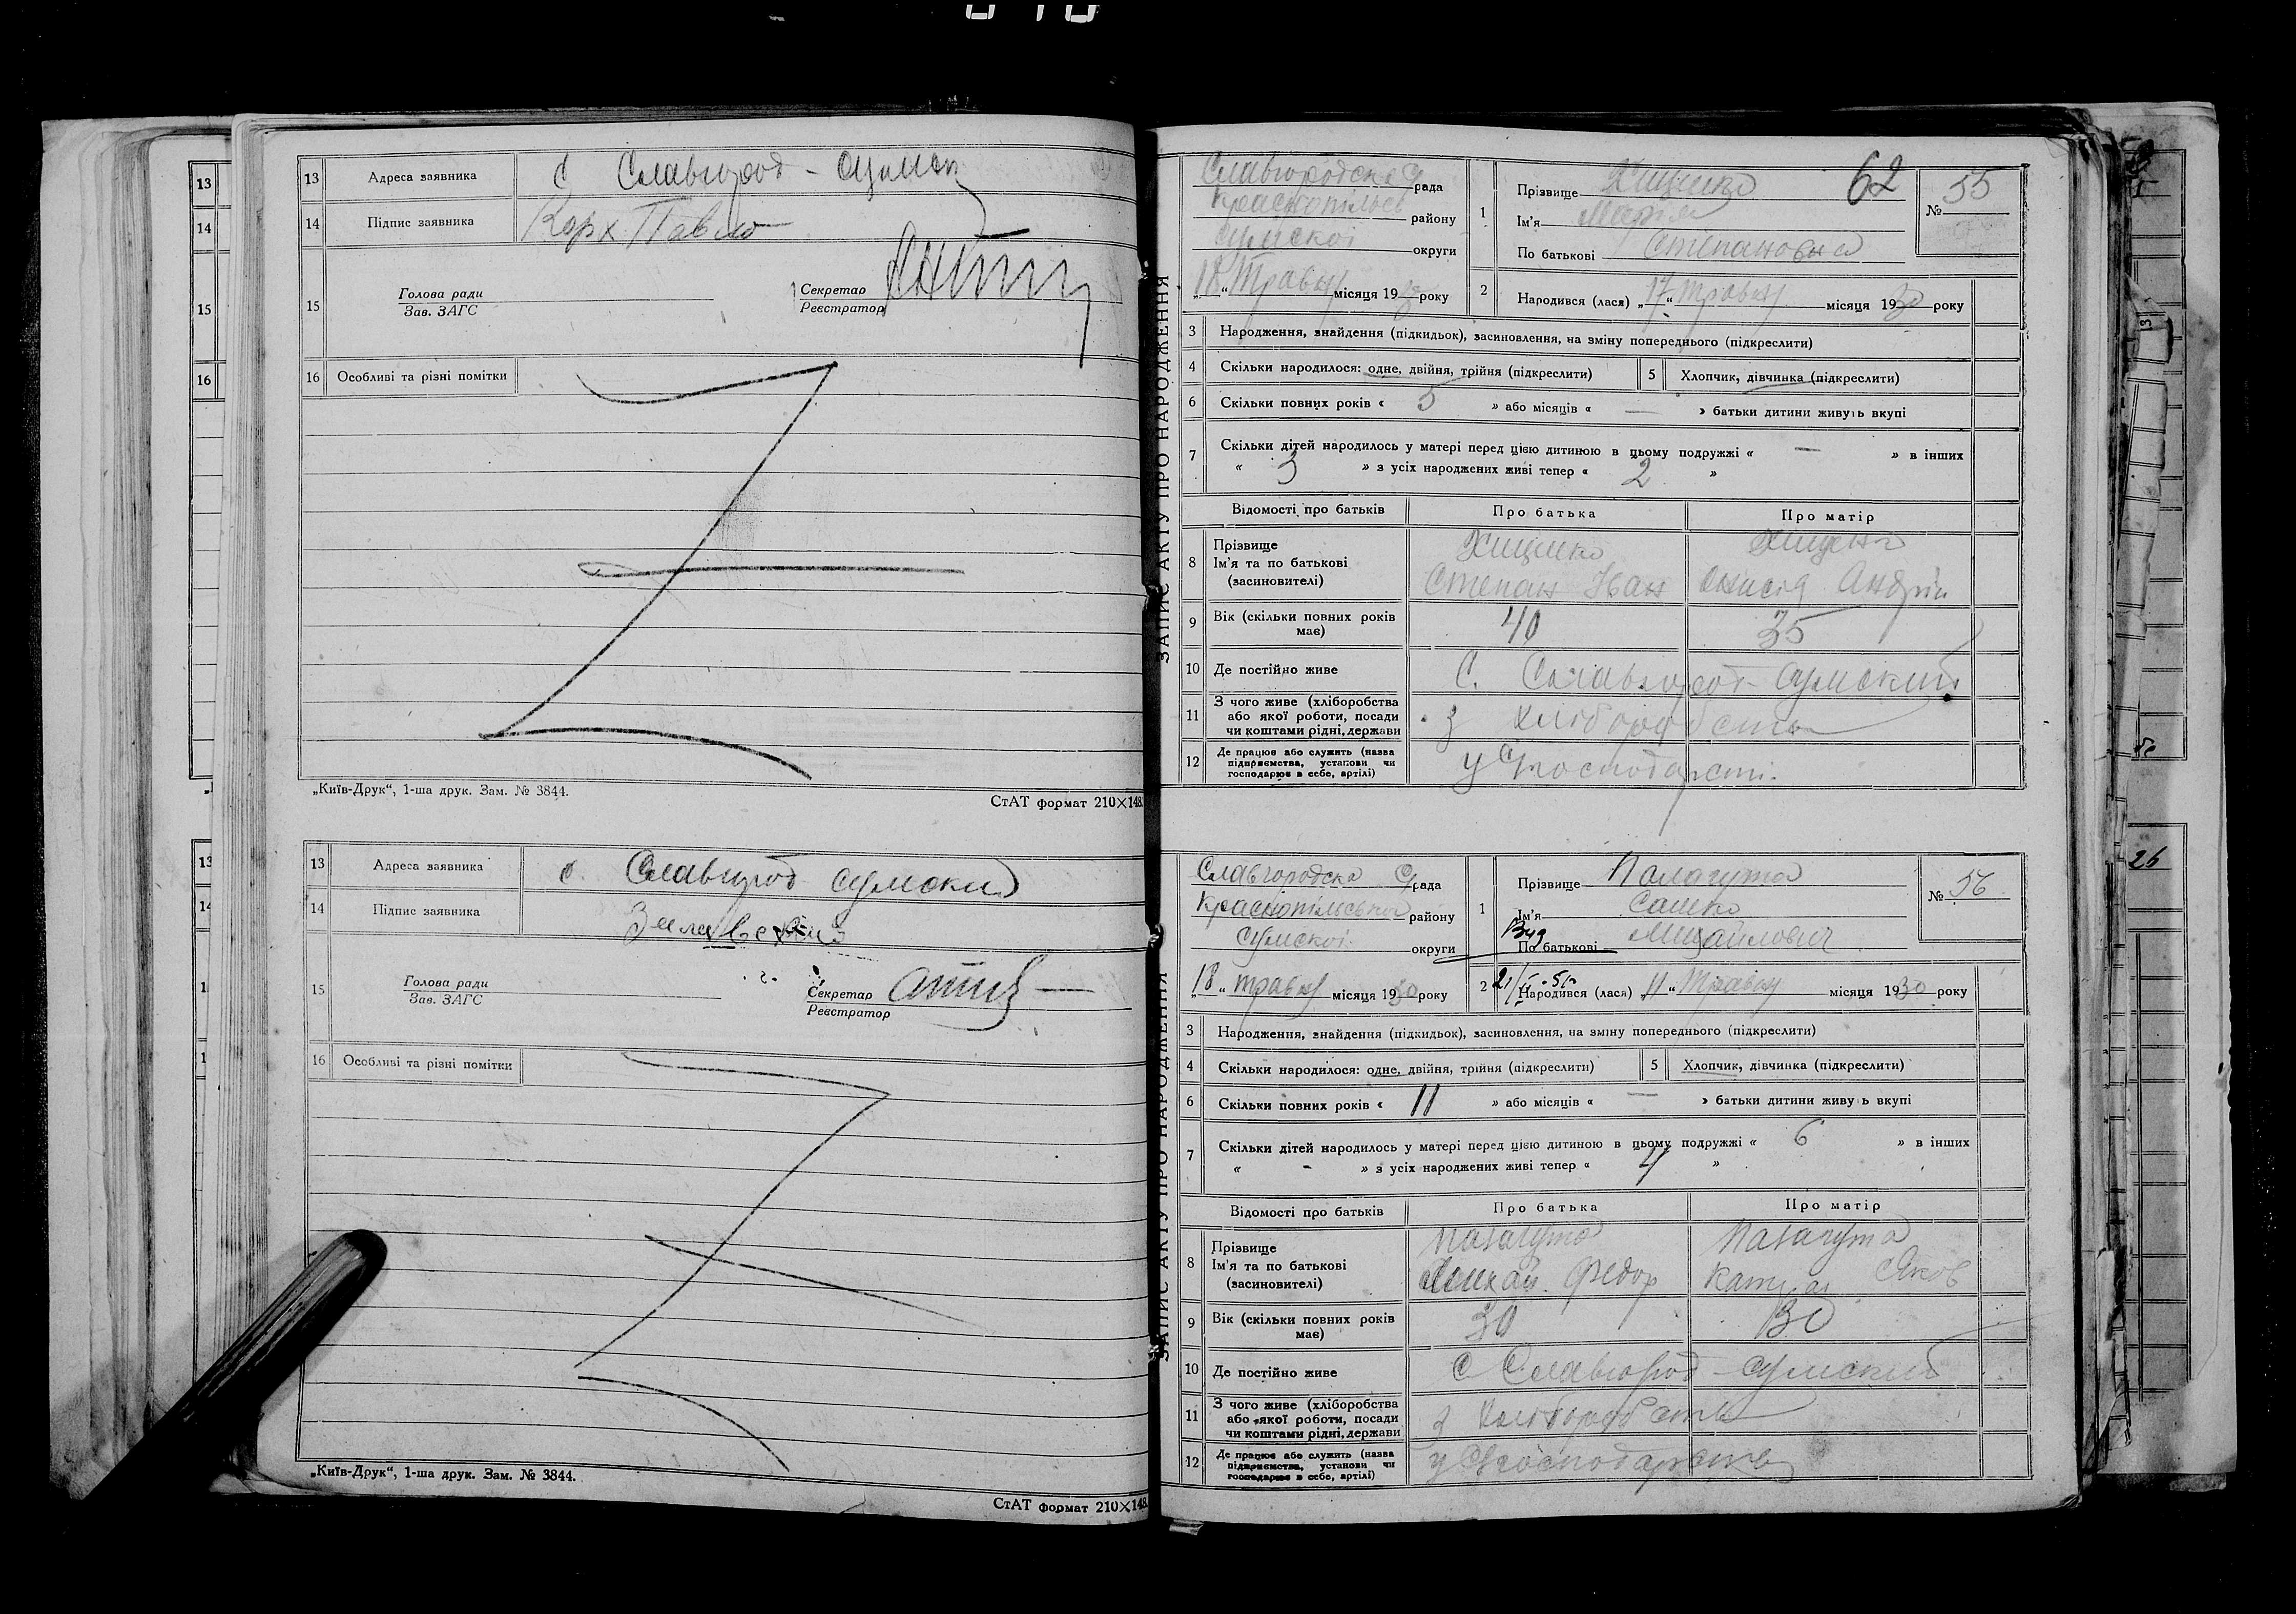 13 Адреса заявника с Славгород -
14 Підпис заявника Корх Павло
15 Голова ради
Зав. ЗАГС
Секретар
Реєстратор
16 Особливі та різні помітки
„Київ-Друк“, 1-ша друк. Зам. № 3844.
СтАТ формат 210×148.
13 Адреса заявника с. Славгород сумский
14 Підпис заявника
15 Голова ради
Зав. ЗАГС
Секретар
Реєстратор
16 Особливі та різні помітки
„Київ-Друк“, 1-ша друк. Зам. № 3844.
СтАТ формат 210×148.
ЗАПИС АКТУ ПРО НАРОДЖЕННЯ
62
Славгородска рада
Краснопільськ району
сумскої округи
„18“ Травня місяця 1930 року
№ 55
1 Прізвище
Ім'я Марія
По батькові Степановна
2 Народився (лася) „17“ травня місяця 1930 року
3 Народження, знайдення (підкидьок), засиновлення, на зміну попереднього (підкреслити)
4 Скільки народилося: одне, двійня, трійня (підкреслити) 5 Хлопчик, дівчинка (підкреслити)
6 Скільки повних років « 5 » або місяців « — » батьки дитини живуть вкупі
7 Скільки дітей народилось у матері перед цією дитиною в цьому подружжі « — » в інших
« 3 » з усіх народжених живі тепер « 2 »
Відомості про батьків Про батька Про матір
8 Прізвище
Ім'я та по батькові
(засиновителі)
Степан Іван Андрій
9 Вік (скільки повних років має) 40 35
10 Де постійно живе с. Славгород Сумский
11 З чого живе (хліборобства або якої роботи, посади чи коштами рідні, держави з хліборобства
12 Де працює або служить (назва підприємства, установи чи господарює в себе, артілі) у С господарстві.
ЗАПИС АКТУ ПРО НАРОДЖЕННЯ
Славгородска С рада
Краснопільської району
сумскої округи
„18“ травня місяця 1930 року
№ 56
1 Прізвище Палагута
Ім'я Сашко
По батькові Михайлович
2 Народився (лася) 11 “ Травня місяця 1930 року
3 Народження, знайдення (підкидьок), засиновлення, на зміну попереднього (підкреслити)
4 Скільки народилося: одне, двійня, трійня (підкреслити) 5 Хлопчик, дівчинка (підкреслити)
6 Скільки повних років « 11 » або місяців « — » батьки дитини живуь вкупі
7 Скільки дітей народилось у матері перед цією дитиною в цьому подружжі « 6 » в інших
« - » з усіх народжених живі тепер « 4 »
Відомості про батьків Про батька Про матір
8 Прізвище Палагута Палагута
Ім'я та по батькові
(засиновителі)
Михай. Федор Яков
9 Вік (скільки повних років має) 30 30
10 Де постійно живе с Славгород - Сумский
11 З чого живе (хліборобства або якої роботи, посади чи коштами рідні, держави з хліборобства
12 Де працює або служить (назва підприємства, установи чи господарює в себе, артілі) у С господарстві